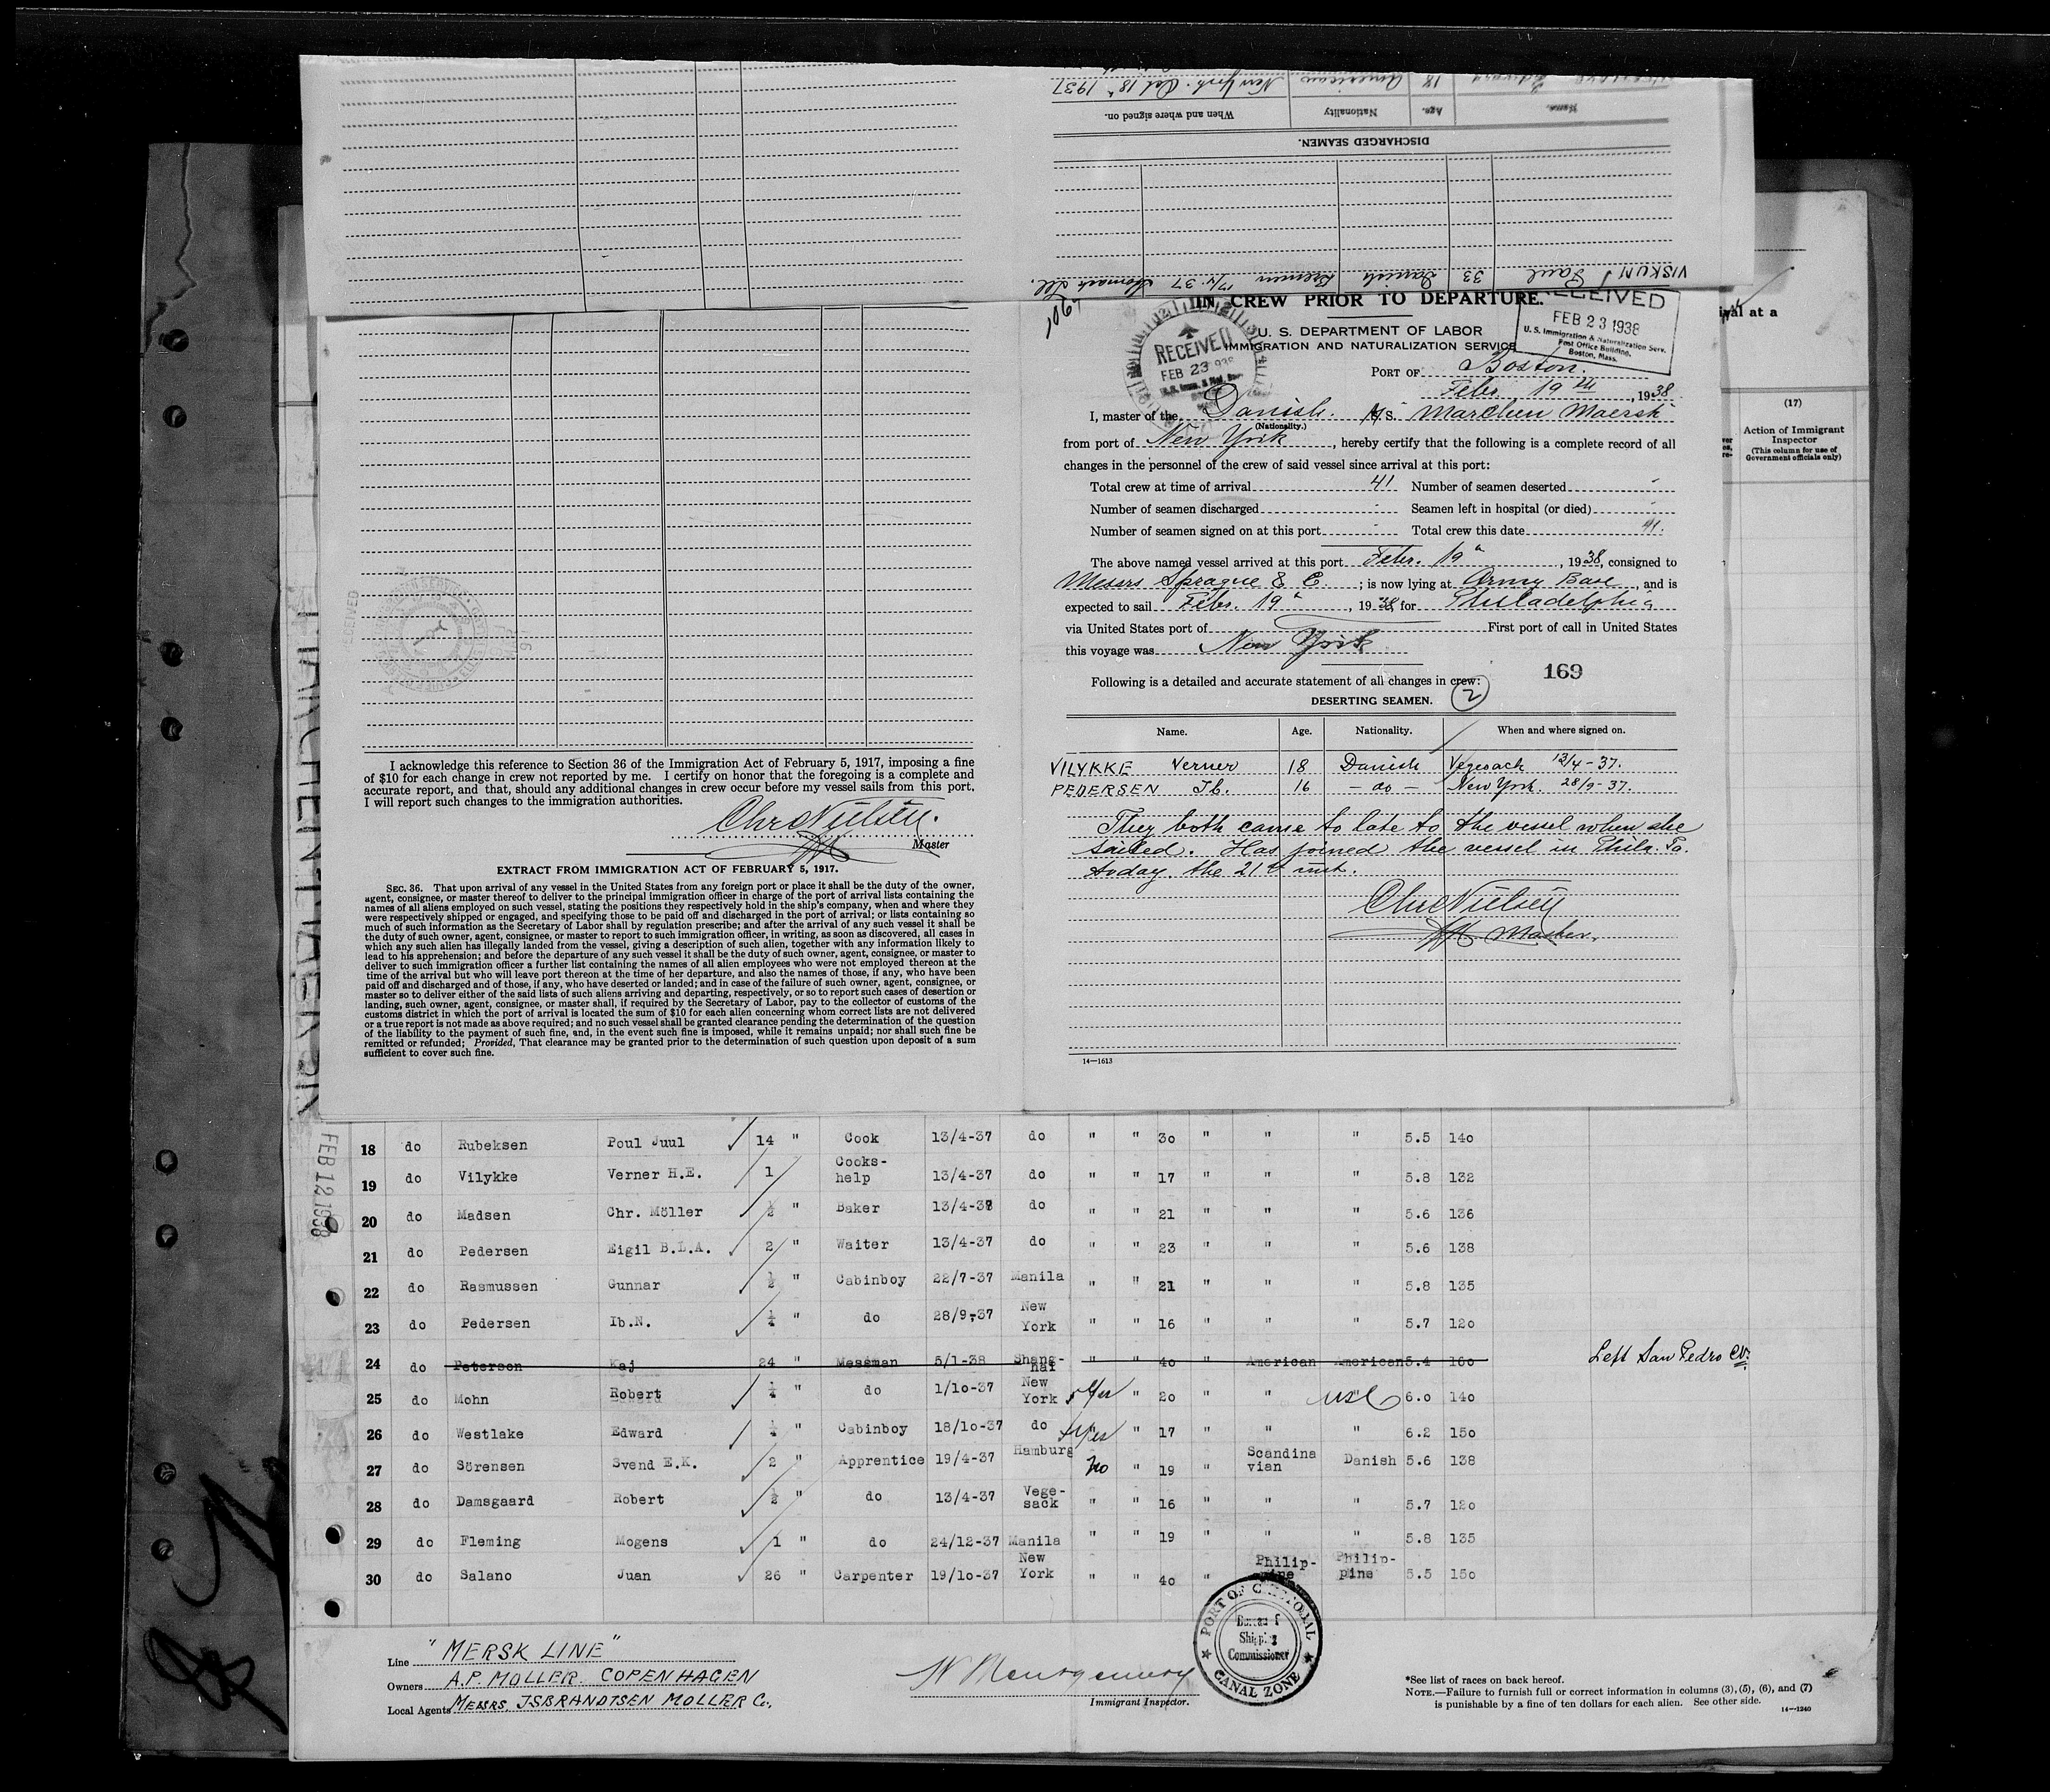 New York. Oct 18" 1937
American
18
Edward
When and where signed on.
Nationality
Age.
Name.
DISCHARGED SEAMEN.
VISKUM Paul 33 Danish Bremen 37 Stomach
IN CREW PRIOR TO DEPARTURE.
U. S. DEPARTMENT OF LABOR
IMMIGRATION AND NATURALIZATION SERVICE
RECEIVED
FEB 23 1938
U. S. Immigration & Naturalization Serv.
Post Office Building,
Boston, Mass.
RECEIVED
FEB 23 938
PORT OF Boston.
Febr. 19th, 1938
I, master of the Danish. M. S. Marchen Maersk
(Nationality.)
from port of New York, hereby certify that the following is a complete record of all
changes in the personnel of the crew of said vessel since arrival at this port:
Total crew at time of arrival 41 Number of seamen deserted -
Number of seamen discharged - Seamen left in hospital (or died) -
Number of seamen signed on at this port - Total crew this date 41.
The above named vessel arrived at this port Febr. 19", 1938, consigned to
Messrs Sprague & C; is now lying at Army Base, and is
expected to sail Febr. 19", 1938 for Philadelphia
via United States port of First port of call in United States
this voyage was New York
169
Following is a detailed and accurate statement of all changes in crew:
DESERTING SEAMEN. 2
Name. Age. Nationality. When and where signed on.
VILYKKE Verner 18 Danish Vegesack 13/4-37.
PEDERSEN Ib. 16 - do - New York. 28/9-37.
They both came to late to the vessel when she
sailed. Has joined the vessel in Phila. Pa.
today the 21st inst.
Chr Nielsen
Master.
14—1613
I acknowledge this reference to Section 36 of the Immigration Act of February 5, 1917, imposing a fine
of $10 for each change in crew not reported by me. I certify on honor that the foregoing is a complete and
accurate report, and that, should any additional changes in crew occur before my vessel sails from this port,
I will report such changes to the immigration authorities.
Chr Nielsen.
Master
EXTRACT FROM IMMIGRATION ACT OF FEBRUARY 5, 1917.
SEC. 36. That upon arrival of any vessel in the United States from any foreign port or place it shall be the duty of the owner,
agent, consignee, or master thereof to deliver to the principal immigration officer in charge of the port of arrival lists containing the
names of all aliens employed on such vessel, stating the positions they respectively hold in the ship's company, when and where they
were respectively shipped or engaged, and specifying those to be paid off and discharged in the port of arrival; or lists containing so
much of such information as the Secretary of Labor shall by regulation prescribe; and after the arrival of any such vessel it shall be
the duty of such owner, agent, consignee, or master to report to such immigration officer, in writing, as soon as discovered, all cases in
which any such alien has illegally landed from the vessel, giving a description of such alien, together with any information likely to
lead to his apprehension; and before the departure of any such vessel it shall be the duty of such owner, agent, consignee, or master to
deliver to such immigration officer a further list containing the names of all alien employees who were not employed thereon at the
time of the arrival but who will leave port thereon at the time of her departure, and also the names of those, if any, who have been
paid off and discharged and of those, if any, who have deserted or landed; and in case of the failure of such owner, agent, consignee, or
master so to deliver either of the said lists of such aliens arriving and departing, respectively, or so to report such cases of desertion or
landing, such owner, agent, consignee, or master shall, if required by the Secretary of Labor, pay to the collector of customs of the
customs district in which the port of arrival is located the sum of $10 for each alien concerning whom correct lists are not delivered
or a true report is not made as above required; and no such vessel shall be granted clearance pending the determination of the question
of the liability to the payment of such fine, and, in the event such fine is imposed, while it remains unpaid; nor shall such fine be
remitted or refunded; Provided, That clearance may be granted prior to the determination of such question upon deposit of a sum
sufficient to cover such fine.
ival at a
(17)
Action of Immigrant
Inspector
(This column for use of
Government officials only)
MARCHEN MAERSK
FEB 12 1938
18 do Rubeksen Poul Juul 14 " Cook 13/4-37 do " " 30 " " " 5.5 140
19 do Vilykke Verner H.E. 1 Cooks-help 13/4-37 do " " 17 " " " 5.8 132
20 do Madsen Chr. Möller ½ " Baker 13/4-38 do " " 21 " " " 5.6 136
21 do Pedersen Eigil B.L.A. 2 " Waiter 13/4-37 do " " 23 " " " 5.6 138
22 do Rasmussen Gunnar ½ " Cabinboy 22/7-37 Manila " " 21 " " " 5.8 135
23 do Pedersen Ib.N. ¼ " do 28/9-37 New York " " 16 " " " 5.7 120
24 do Peterson Kaj 24 " Messman 5/1-38 Shang-hai " " 40 " American American 5.4 160 Left San Pedro
25 do Mohn Robert ¼ " do 1/10-37 New York yes " 20 " " USC 6.0 140
26 do Westlake Edward ¼ " Cabinboy 18/10-37 do yes " 17 " " " 6.2 150
27 do Sörensen Svend E.K. 2 " Apprentice 19/4-37 Hamburg no " 19 " Scandina vian Danish 5.6 138
28 do Damsgaard Robert ½ " do 13/4-37 Vege-sack " " 16 " " " 5.7 120
29 do Fleming Mogens 1 " do 24/12-37 Manila " " 19 " " " 5.8 135
30 do Salano Juan 26 " Carpenter 19/10-37 New York " " 40 " Philip-pine Philip-pine 5.5 150
Line "MERSK LINE"
Owners A.P. MOLLER. COPENHAGEN
Local Agents MESSRS. ISBRANDTSEN MOLLER Co.,
W Montgomery
Immigrant Inspector.
PORT OF CRISTOBAL
Bureau of
Shipping
Commissioner
CANAL ZONE
*See list of races on back hereof.
NOTE.—Failure to furnish full or correct information in columns (3), (5), (6), and (7)
is punishable by a fine of ten dollars for each alien. See other side.
14—1240